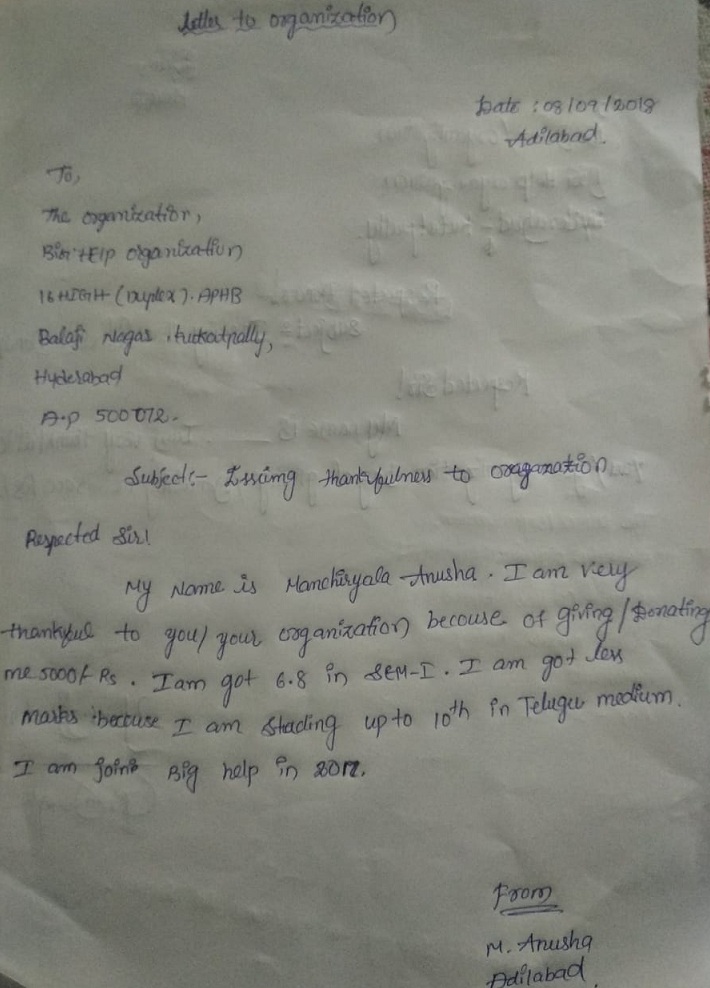 Letter to organization
Date : 03/09/2018
Adilabad.
To,
The organization,
organization
16 HIGH (Duplex). APHB
Balaji Nagar, kukatpally,
Hyderabad
A.P 500072.
Subject:- Issuing thankfulness to oraganazation
Respected Sir!
My Name is Manchiryala Anusha. I am very
thankful to you/ your organization becouse of giving/Donating
me 5000/- Rs. I am got 6.8 in SEM-I. I am got less
marks becouse I am stading up to 10th in Telugu medium.
I am joins Big help in 2017.
From
M. Anusha
Adilabad